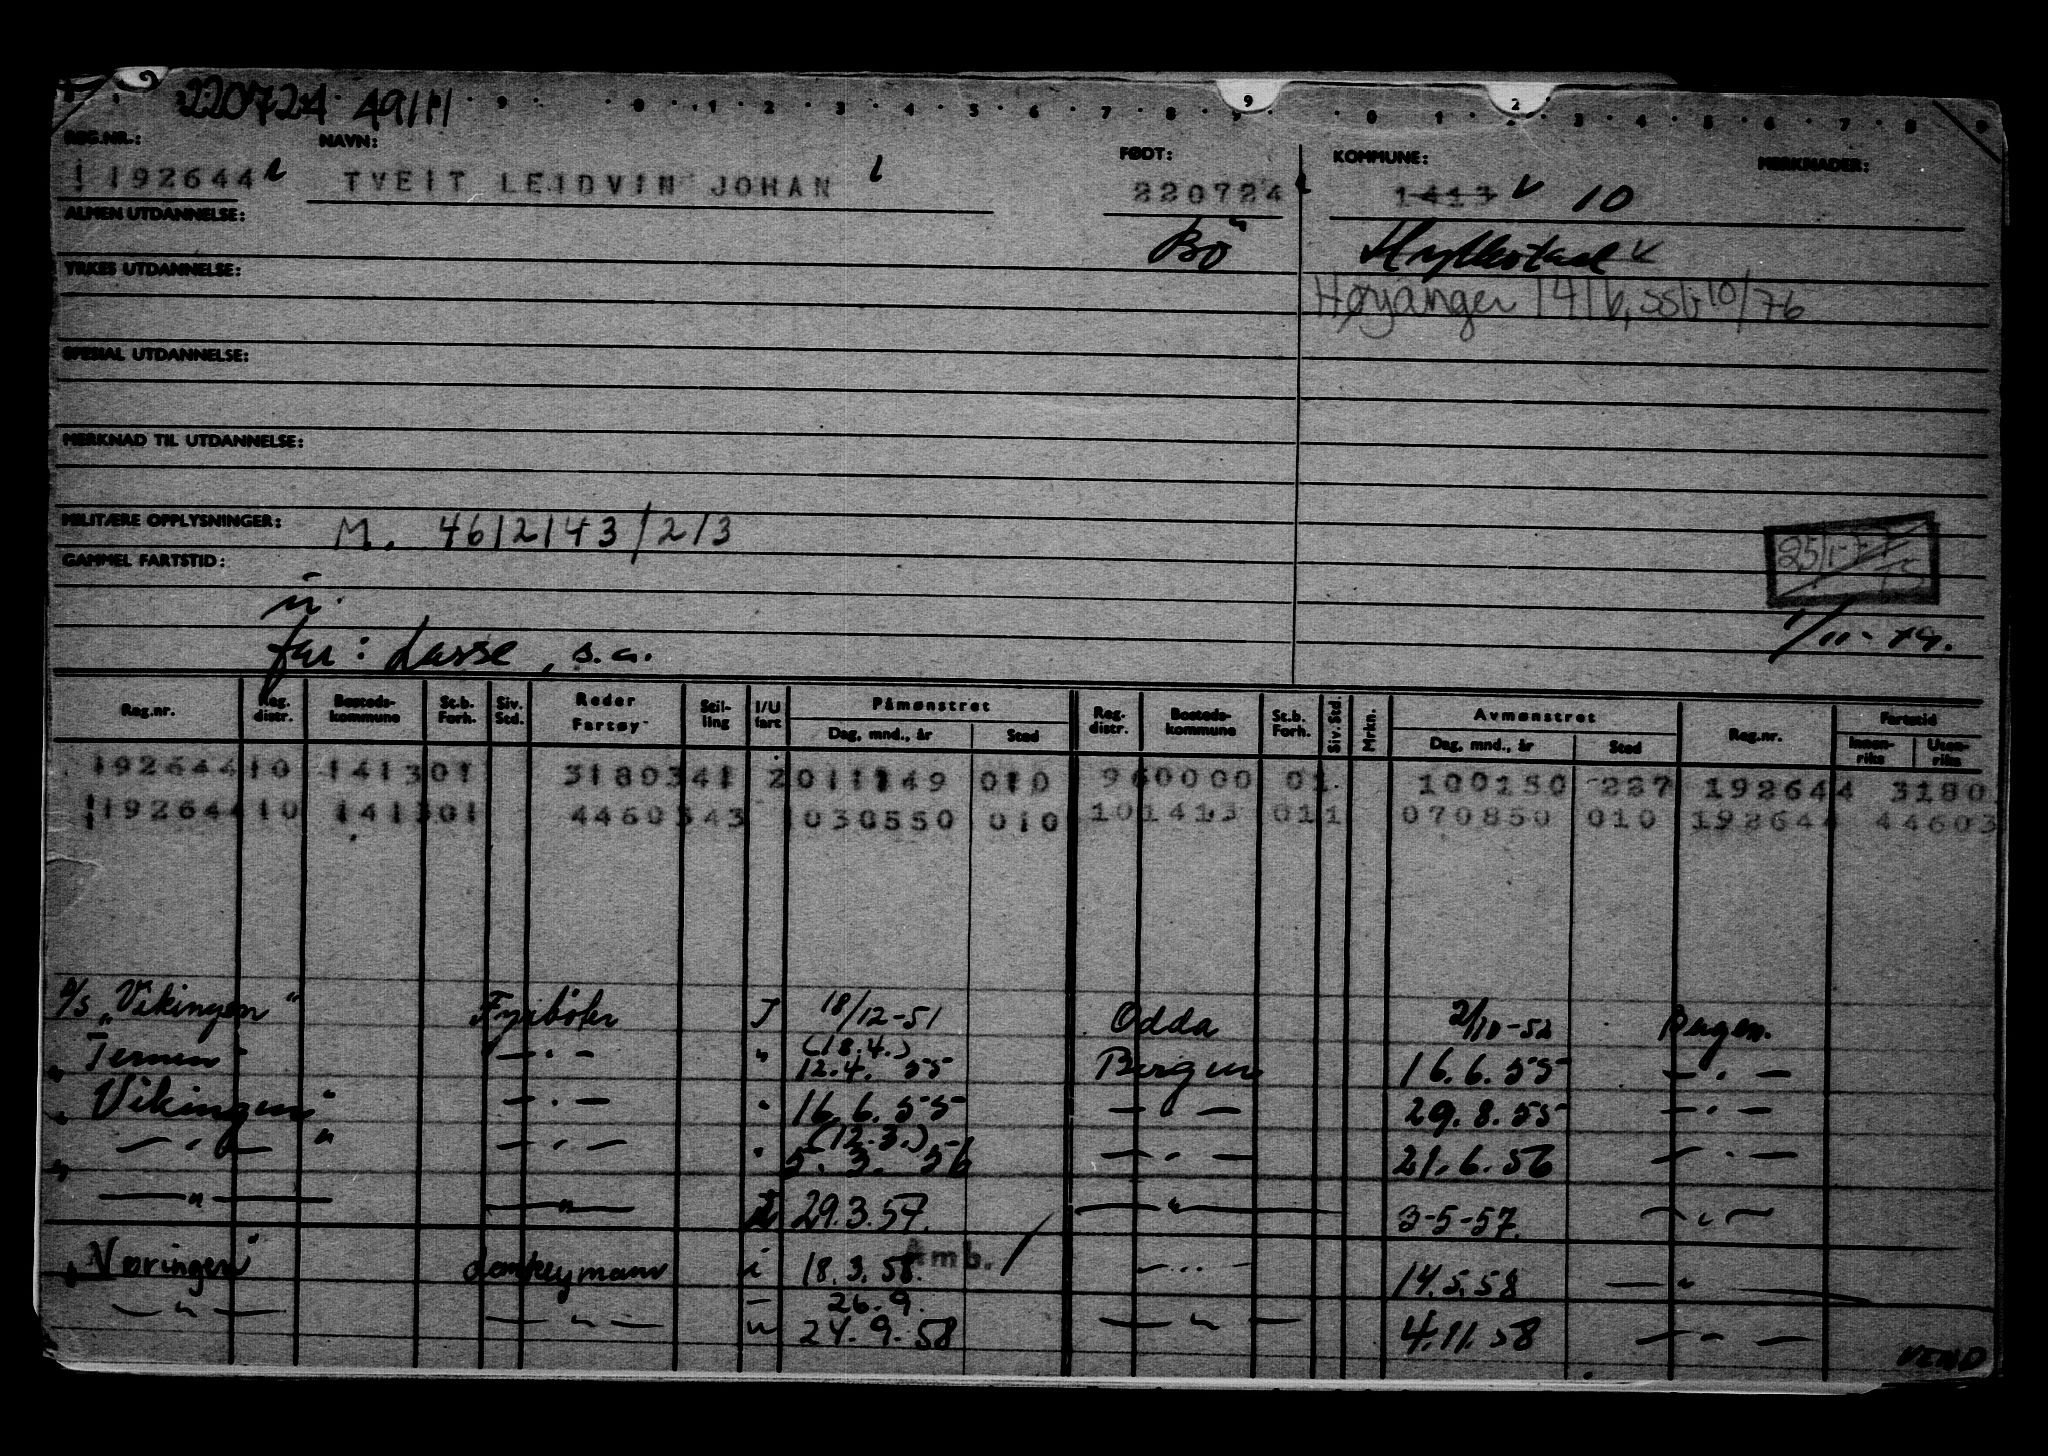 220724 49111
REG.NR.: NAVN: FØDT: KOMMUNE: MERKNADER:
192644 TVEIT LEIDVIN JOHAN 220724 1413 10
ALMEN UTDANNELSE: Bö Hyllestad
YRKES UTDANNELSE: Høyanger 1416, 10/76
SPESIAL UTDANNELSE:
MERKNAD TIL UTDANNELSE:
MILITÆRE OPPLYSNINGER: M. 4612143/213
GAMMEL FARTSTID:
far: Lasse, s.a.
Reg.nr. Reg. distr. Bosteds-kommune St.b. Forh. Siv. Std. Reder Fartøy Stil-ling I/U fart Påmønstret Dag, mnd., år Sted Reg. distr. Bosteds-kommune St.b. Forh. Siv. Std. Mrkn. Avmønstret Dag, mnd., år Sted Reg.nr. Fartstid Innen-riks Uten-riks
192644 10 141301 3180341 2 011149 010 960000 01 100150 227 192644 3180
192644 10 141301 4460343 030550 010 101413 011 070850 010 192644 44603
D/S "Vikingen" Fyrböter I 18/12-51 Odda 2/10-52 Bergen.
" Ternen" — " — " (18.4.) 12.4. 55 Bergen 16.6.55 — " —
" Vikingen" — " — " 16.6.55 — " — 29.8.55 — " —
" — " — " — " — " (12.3.) 5.3. 56 — " — 21.6.56 — " —
— " — — " — 29.3.57. — " — 3-5-57. — " —
" Næringen" donkeymann i 18.3.58. Amb. — " — 14.5.58 — " —
— " — — " — — " 26.9. 24.9.58 — " — 4.11.58 — " —
VEND